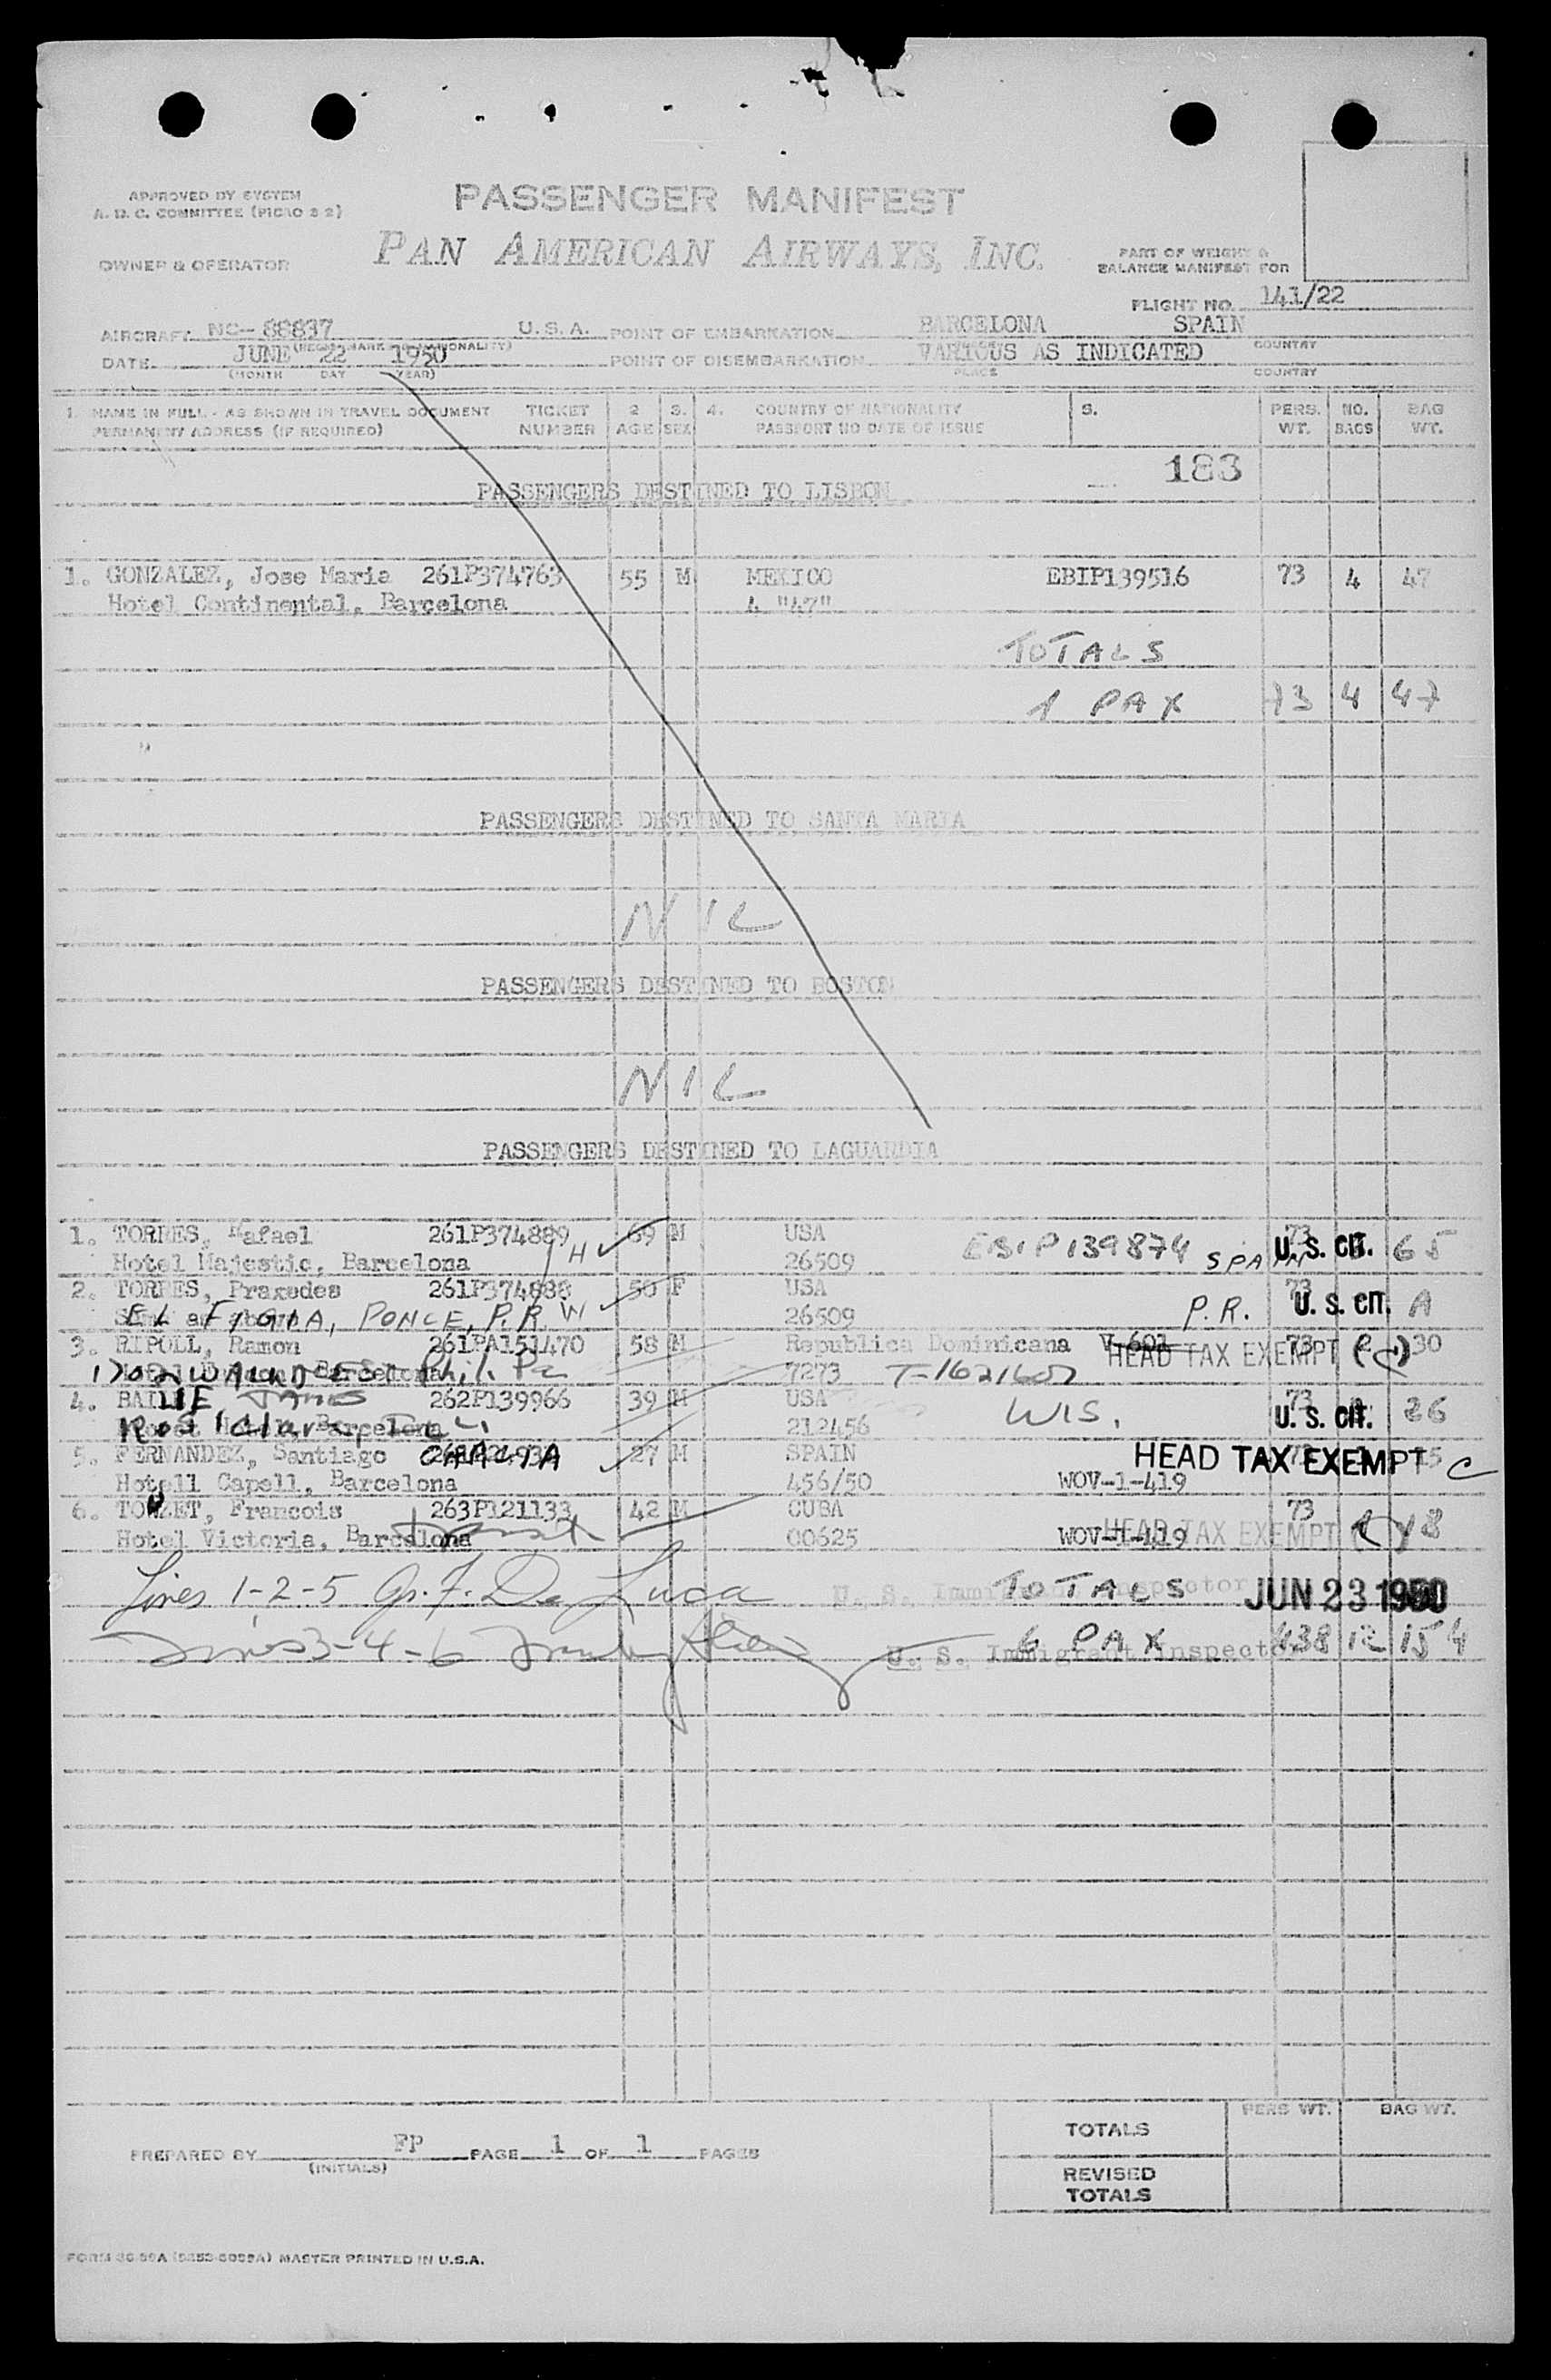 APPROVED BY SYSTEM
A. D. C. COMMITTEE (PICAO S 2)
PASSENGER MANIFEST
PAN AMERICAN AIRWAYS, INC.
OWNER & OPERATOR
PART OF WEIGHT &
BALANCE MANIFEST FOR
FLIGHT NO. 141/22
AIRCRAFT NC-88837 U. S. A. POINT OF EMBARKATION BARCELONA SPAIN
DATE JUNE 22 1950 POINT OF DISEMBARKATION VARIOUS AS INDICATED COUNTRY
(MONTH DAY YEAR) PLACE COUNTRY
1. NAME IN FULL - AS SHOWN IN TRAVEL DOCUMENT TICKET 2 3. 4. COUNTRY OF NATIONALITY 5. PERS. NO. BAG
PERMANENT ADDRESS (IF REQUIRED) NUMBER AGE SEX PASSPORT NO DATE OF ISSUE WT. BAGS WT.
183
PASSENGERS DESTINED TO LISBON
1. GONZALEZ, Jose Maria 261P374763 55 M MEXICO EBIP139516 73 4 47
Hotel Continental, Barcelona 4 "47"
TOTALS
1 PAX 73 4 47
PASSENGERS DESTINED TO SANTA MARIA
NIL
PASSENGERS DESTINED TO BOSTON
NIL
PASSENGERS DESTINED TO LAGUARDIA
1. TORRES, Rafael 261P374889 69 M USA EBIP139874 73 65
Hotel Majestic, Barcelona H 26509 SPAIN U. S. CIT.
2. TORRES, Praxedes 261P374888 50 F USA 73
EL FIGIA, PONCE, P.R. W 26509 P.R. U. S. CIT. A
3. RIPOLL, Ramon 261PA151470 58 M Republica Dominicana V-601 73 2 30
Barcelona Phil. Pa 7273 T-1621607 HEAD TAX EXEMPT
4. BAILIE JAMES 262P139966 39 M USA 73 26
Barcelona 212456 WIS. U. S. CIT.
5. FERNANDEZ, Santiago 27 M SPAIN HEAD TAX EXEMPT 15 C
Hotell Capell, Barcelona 456/50 WOV-1-419
6. TOUZET, Francois 263P121133 42 M CUBA 73 18
Hotel Victoria, Barcelona 00625 WOV-1-419 HEAD TAX EXEMPT
Lines 1-2-5 De Luca U. S. Immigrant Inspector TOTALS JUN 23 1950
3-4-6 U. S. Immigrant Inspector 6 PAX 438 12 154
PREPARED BY FP PAGE 1 OF 1 PAGES
(INITIALS)
PERS WT. BAG WT.
TOTALS
REVISED
TOTALS
MASTER PRINTED IN U.S.A.